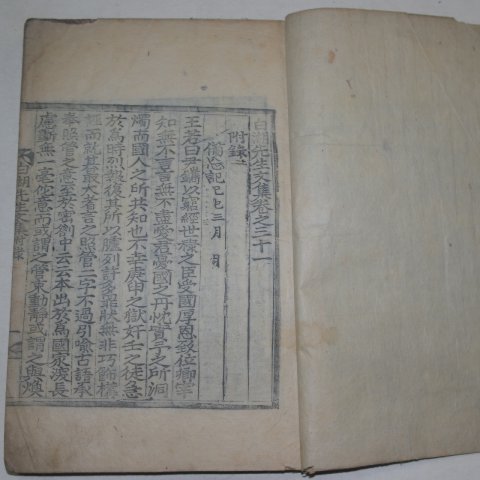 白湖先生文集卷之三十一
附錄二
備忘記己巳三月 日
王若曰尹鑴以驅經世樑之臣受國厚恩致位卿宰
知無不言言無不盡愛君憂國之丹忱實予之所洞
燭而國人之所共知也不幸庚申之獄奸壬之徒急
於烏時列數復其所以臚列許多罪狀無非巧飾構
誣而就其最大者言之照管二字不過引喩古語承
奉照管之意至於密劄中云云本出於爲國家深長
慮斷無一毫他意而或謂之管束動靜或謂之與煥
白湖先生文集附錄